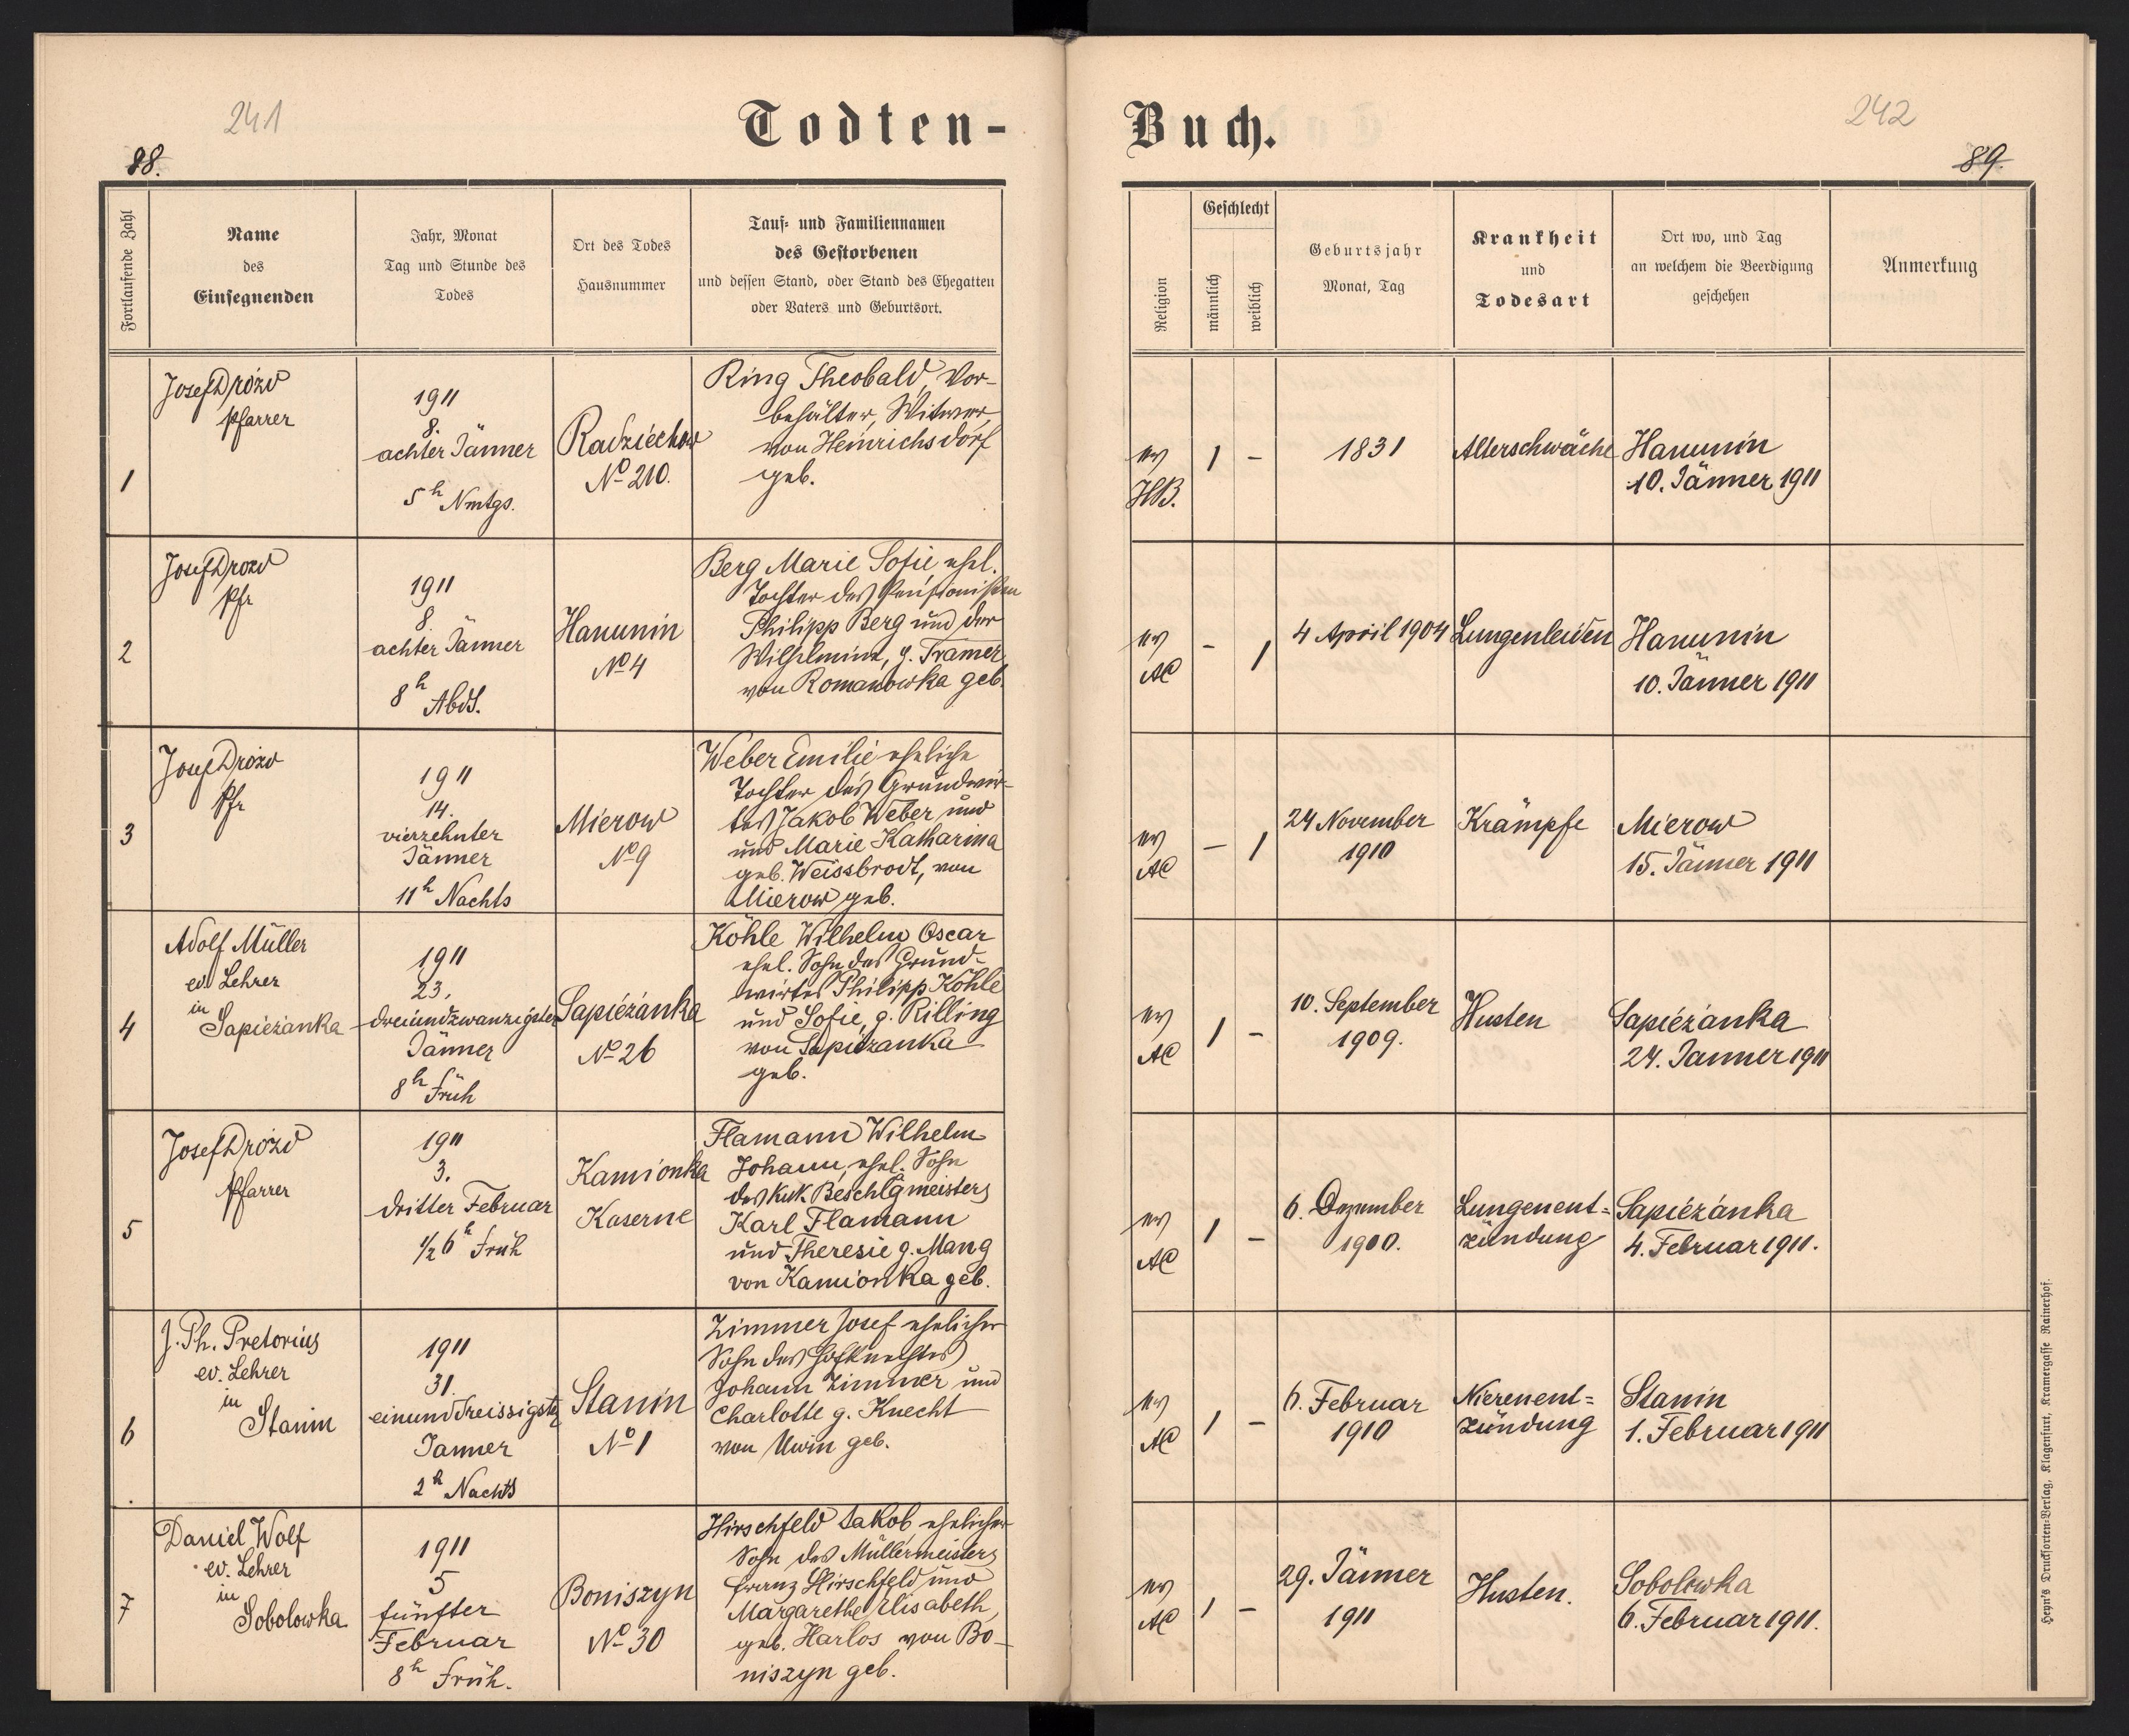 241
88.
Todten-
Fortlaufende Zahl
Name
des
Einsegnenden
Jahr, Monat
Tag und Stunde des
Todes
Ort des Todes
Hausnummer
Tauf- und Familiennamen
des Gestorbenen
und dessen Stand, oder Stand des Ehegatten
oder Vaters und Geburtsort.
1
Josef Drózd
Pfarrer
1911
8.
achter Jänner
5h Nmtgs.
Radziechow
No 210.
Ring Theobald, Vor-
behälter, Witwer,
von Heinrichsdorf
geb.
2
Josef Drozd
Pfr
1911
8.
achter Jänner
8h Abds.
Hanunin
No 4
Berg Marie Sofie ehel.
Tochter des Pensionisten
Philipp Berg und der
Wilhelmine, g. Tramer
von Romanowka geb.
3
Josef Drózd
Pfr
1911
14.
vierzehnter
Jänner
11h Nachts
Mierow
No 9
Weber Emilie eheliche
Tochter des Grundwir-
tes Jakob Weber und
und Marie Katharina
geb. Weissbrodt, von
Mierow geb.
4
Adolf Müller
ev. Lehrer
in
Sapiéżanka
1911
23.
dreiundzwanzigster
Jänner
8h Früh
Sapiéżanka
No 26
Köhle Wilhelm Oscar
ehel. Sohn des Grund-
wirtes Philipp Köhle
und Sofie, g. Rilling
von Sapiéżanka
geb.
5
Josef Drózd
Pfarrer
1911
3.
dritter Februar
1/2 6h Früh
Kamionka
Kaserne
Flamann Wilhelm
Johann, ehel. Sohn
des KuK Beschlgmeisters
Karl Flamann
und Theresie g. Mang
von Kamionka geb.
6
J. Ph. Pretorius
ev. Lehrer
in
Stanin
1911
31.
einunddreissigster
Janner
2h Nachts
Stanin
No 1
Zimmer Josef ehelicher
Sohn des Hofknechtes
Johann Zimmer und
Charlotte g. Knecht
von Uwin geb.
7
Daniel Wolf
ev. Lehrer
in
Sobolowka
1911
5
fünfter
Februar
8h Früh.
Boniszyn
No 30
Hirschfeld Jakob, ehelicher
Sohn des Müllermeisters
Franz Hirschfeld und
Margarethe Elisabeth,
geb. Harlos von Bo-
niszyn geb.
242
89.
Buch.
Religion
Geschlecht
männlich
weiblich
Geburtsjahr
Monat, Tag
Krankheit
und
Todesart
Ort wo, und Tag
an welchem die Beerdigung
geschehen
Anmerkung
ev
HB.
1
-
1831
Alterschwäche
Hanunin
10. Jänner 1911
ev
AC
-
1
4 April 1904
Lungenleiden
Hanunin
10. Jänner 1911
ev
AC
-
1
24 November
1910
Krämpfe
Mierow
15. Jänner 1911
ev
AC
1
-
10. September
1909.
Husten
Sapiéżanka
24. Janner 1911
ev
AC
1
-
6. Dezember
1900.
Lungenent-
zündung
Sapiéżanka
4. Februar 1911.
ev
AC
1
-
6. Februar
1910
Nierenent-
zündung
Stanin
1. Februar 1911
ev
AC
1
-
29. Jänner
1911
Husten.
Sobolowka
6. Februar 1911.
Heyn's Drucksorten-Verlag, Klagenfurt, Kramergasse Rainerhof.